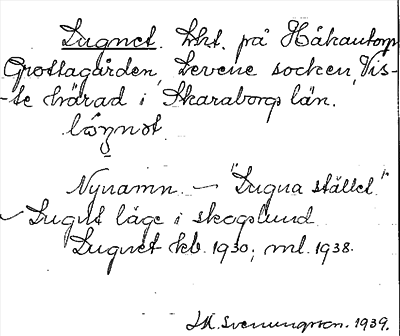 Lugnet. Lht. på Håkantorp
Grottagården, Levene socken, Vis-
-te härad i Skaraborgs län.
lôŋnət
Nynamn. – "Lugna stället."
Lugnt läge i skogslund
Lugnet kb. 1930; ml. 1938.
Svenungson. 1939.